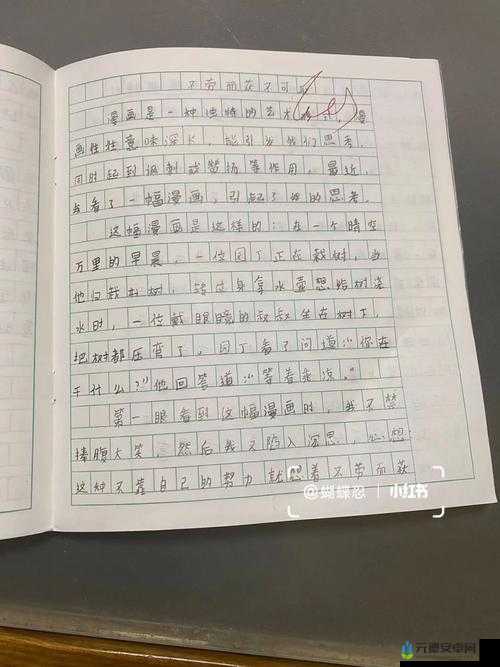 不劳而获不可
漫画是一种独特的艺术形式,漫
画往往意味深长,能引发我们思考,
同时起到讽刺或赞扬等作用。最近,
我看了一幅漫画,引起了我的思考。
这幅漫画是这样的:在一个晴空
万里的早晨,一位园丁正在栽树,当
他已栽树,转过身拿水壶想给树浇
水时,一位戴眼镜的叔叔坐在树下,
把树都压弯了。园丁看了问道:“你在
干什么?”他回答道:“等着乘凉。”
第一眼看到这幅漫画时,我不禁
捧腹大笑,然后我又陷入沉思,心想:
这种不靠自己的努力就想着不劳而获
@蝴蝶忍 小红书
元德安卓网